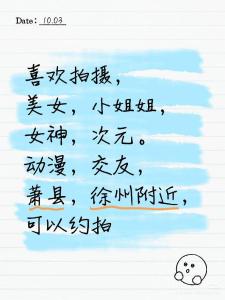 Date: 10.03
喜欢拍摄，
美女，小姐姐，
女神，次元。
动漫，交友，
萧县，徐州附近，
可以约拍